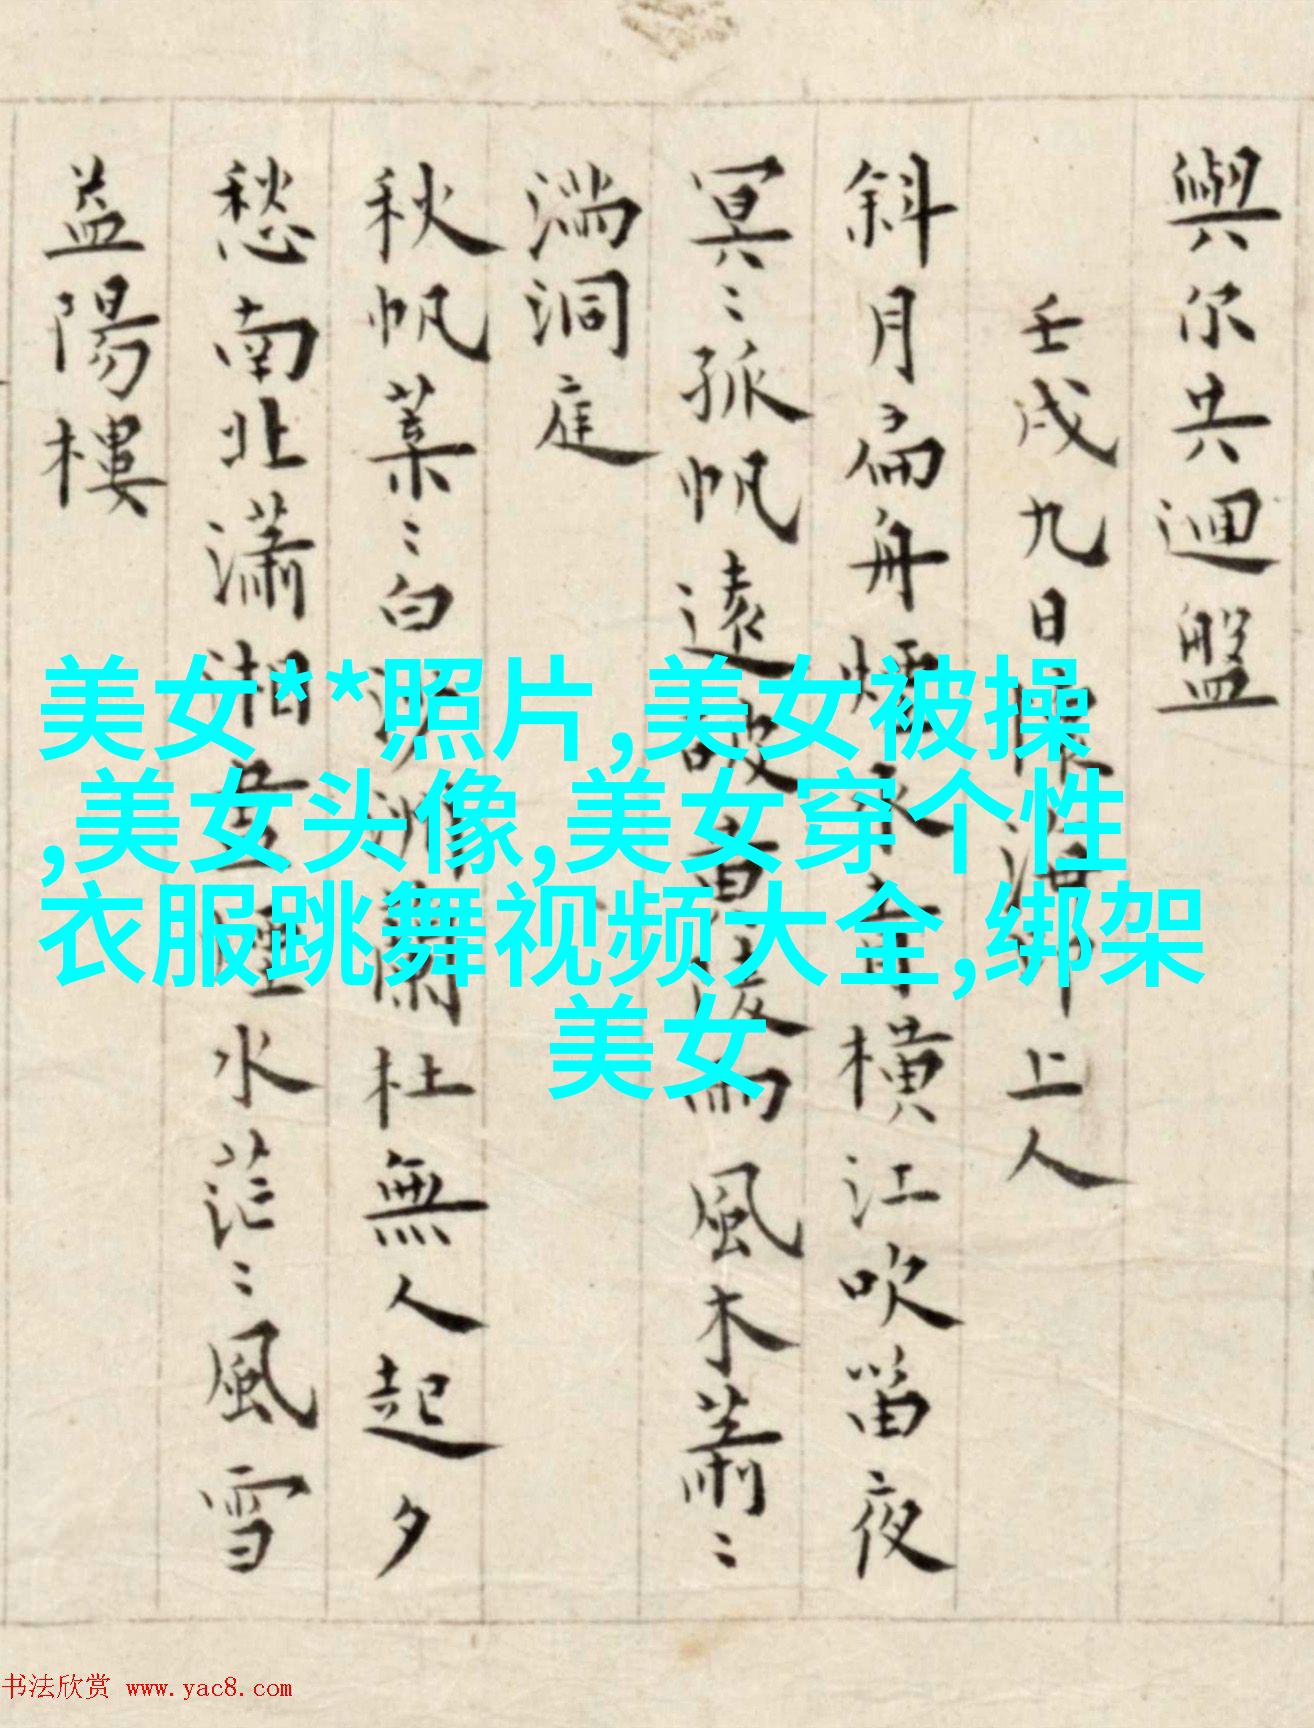 與尔共迴盤
壬戌九日懷海印上人
斜月扁舟煙水平橫江吹笛夜
冥〻孤帆遠破黃陵雨風木蕭〻
滿洞庭
秋帆葉〻白沙洲蘭杜無人起夕
愁南北瀟湘無水茫〻風雪
益陽樓
美女**照片,美女被操
,美女头像,美女穿个性
衣服跳舞视频大全,绑架
美女
书法欣赏 www.yac8.com